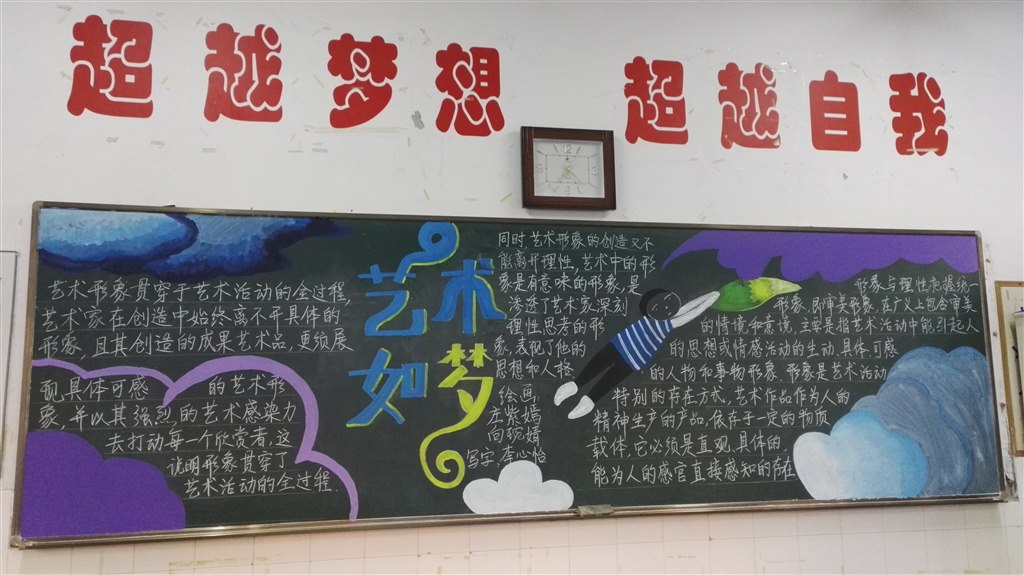 超越梦想 超越自我
艺术如梦
艺术形象贯穿于艺术活动的全过程,
艺术家在创造中始终离不开具体的
形象,且其创造的成果艺术品,更须展
现具体可感的艺术形
象,并以其强烈的艺术感染力
去打动每一个欣赏者,这
说明形象贯穿了
艺术活动的全过程.
同时,艺术形象的创造又不
能离开理性,艺术中的形
象是有意味的形象,是
渗透了艺术家深刻
理性思考的形
象,表现了他的
思想和人格
绘画:
庄紫嫣
向婧
写字:李心怡
形象与理性把握统一
形象,即审美形象,在广义上包含审美
的情境和意境,主要是指艺术活动中能引起人
的思想或情感活动的生动、具体、可感
的人物和事物形象.形象是艺术活动
特别的存在方式,艺术作品作为人的
精神生产的产品,依存于一定的物质
载体,它必须是直观、具体的
能为人的感官直接感知的存在